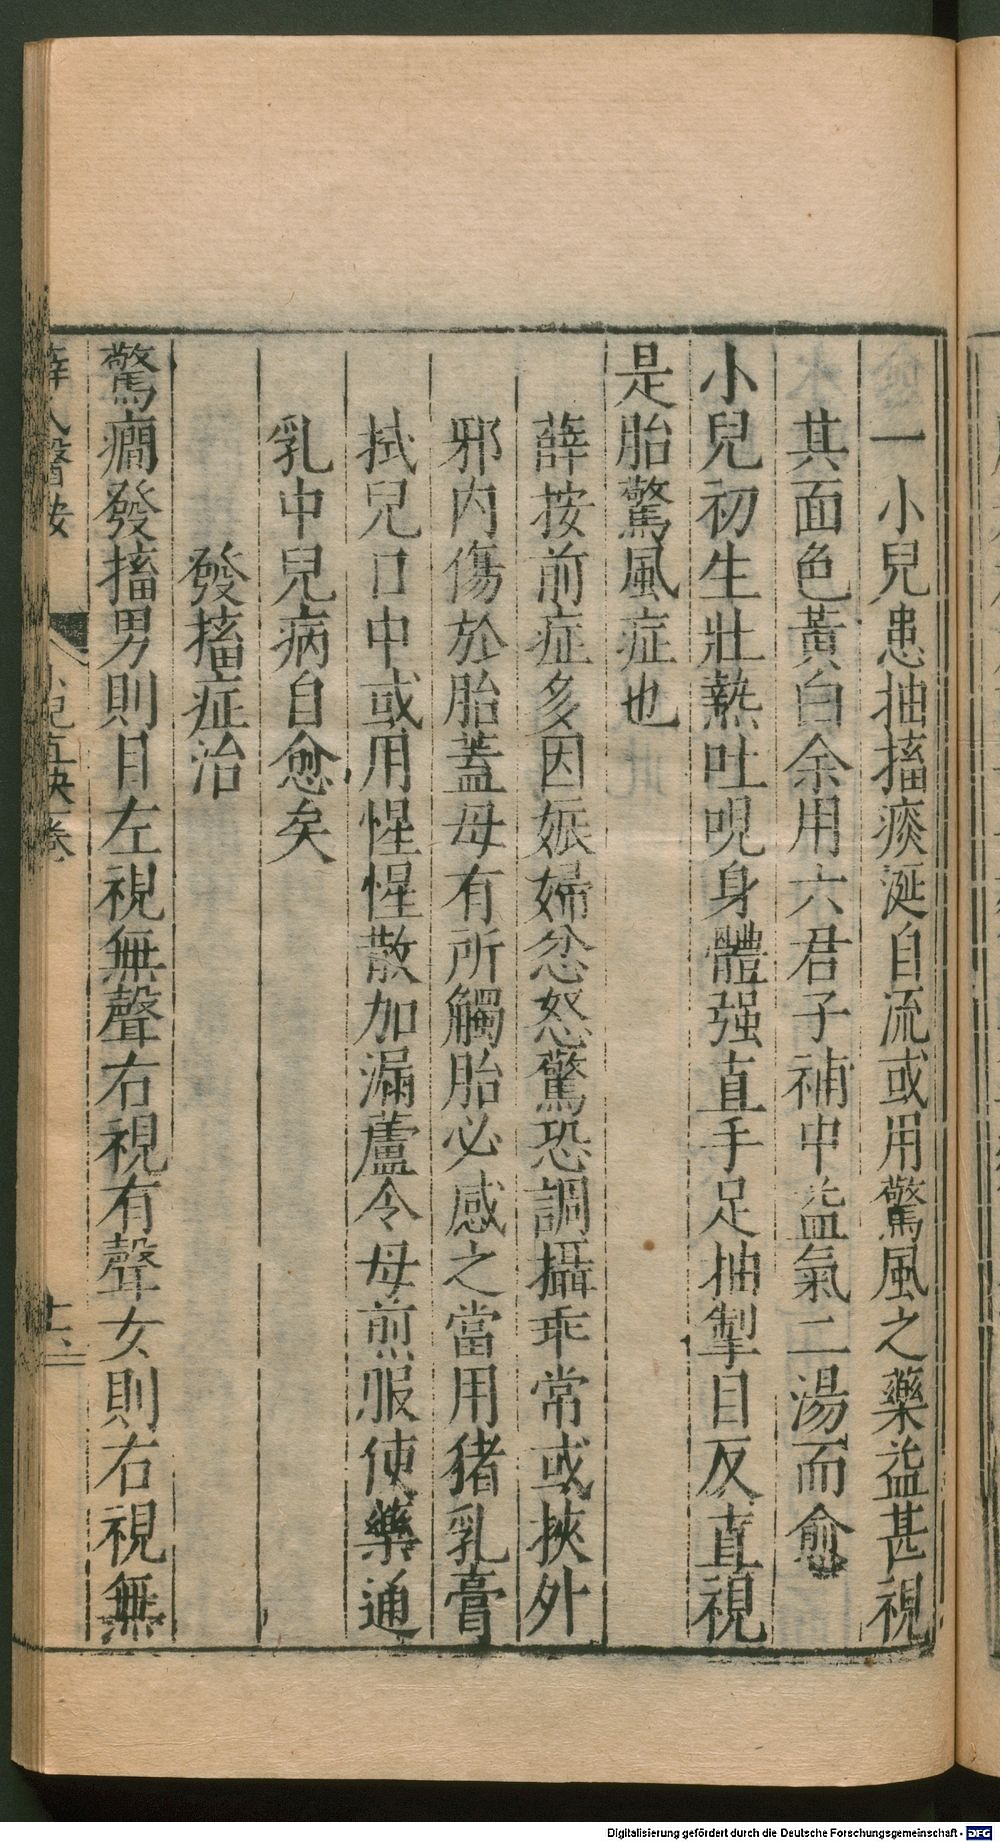 一小兒患抽搐痰涎自流或用驚風之藥益甚視
其面色黃白余用六君子補中益氣二湯而愈
小兒初生壯熱吐哯身體强直手足抽掣目反直視
是胎驚風症也
薛按前症多因娠婦忿怒驚恐調攝乖常或挾外
邪內傷於胎蓋母有所觸胎必感之當用猪乳膏
拭兒口中或用惺惺散加漏蘆令母煎服使藥通
乳中兒病自愈矣
發搐症治
驚癎發搐男則目左視無聲右視有聲女則右視無
薛氏醫按
小兒直訣一卷
Digitalisierung gefördert durch die Deutsche Forschungsgemeinschaft - DFG